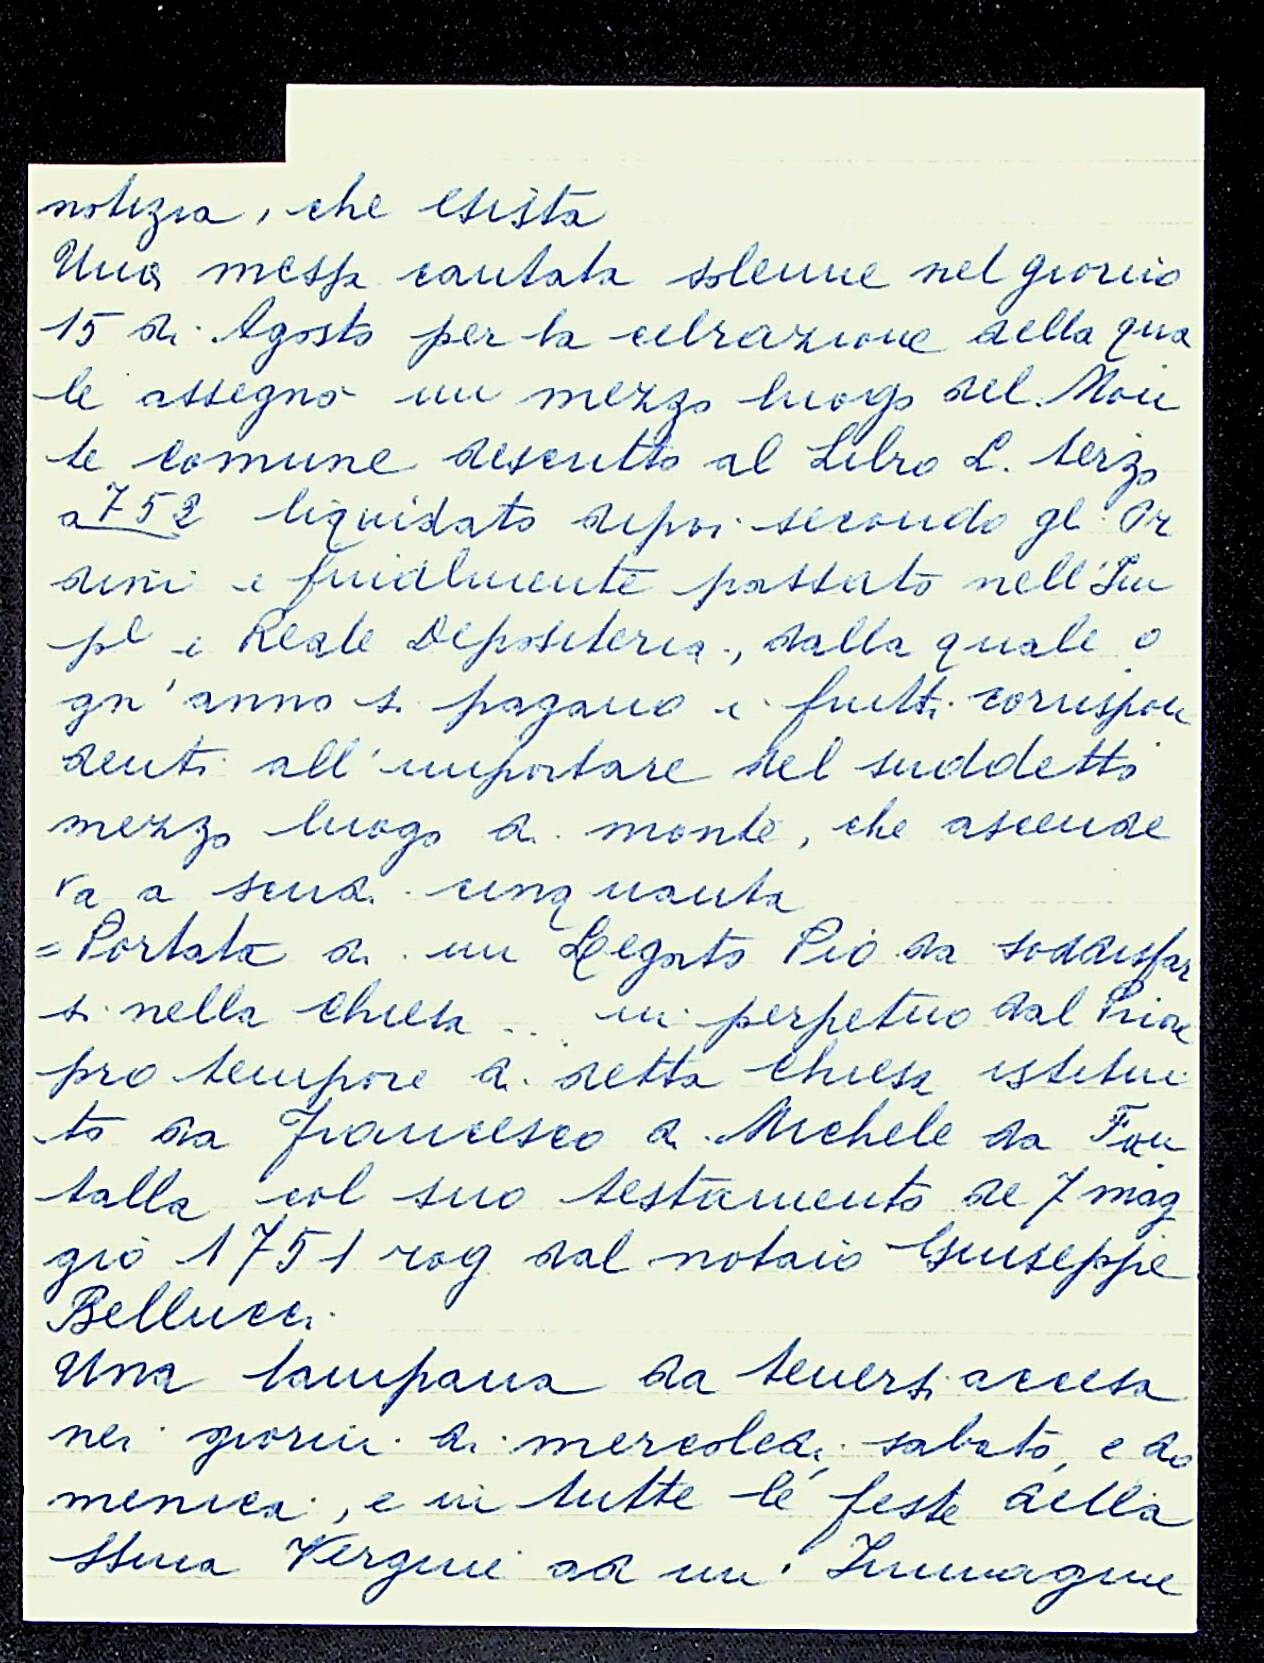 notizia, che esista
Una messa cantata solenne nel giorno
15 di Agosto per la celrazione della qua
le assegnò un mezzo luogo del Mon
te comune descritto al Libro L. terzo
a 752 liquidato dipoi secondo gl. Or
dini e finalmente passato nell'Im
pl e Reale Depositeria, dalla quale o
gn'anno si pagano i frutti corrispon
denti all'importare del suddetto
mezzo luogo di monte, che ascende
va a scudi cinquanta
= Portata di un Legato Pio da soddisfar
si nella Chiesa .. in perpetuo dal Priore
pro tempore di detta Chiesa istitui
to da Francesco di Michele da Fon
talla col suo testamento de 7 mag
gio 1751 rog dal notaio Giuseppe
Bellucci.
Una lampana da tenersi accesa
nei giorni di mercoledì, sabato, e do
menica, e in tutte le feste della
SSma Vergine ad un' Immagine